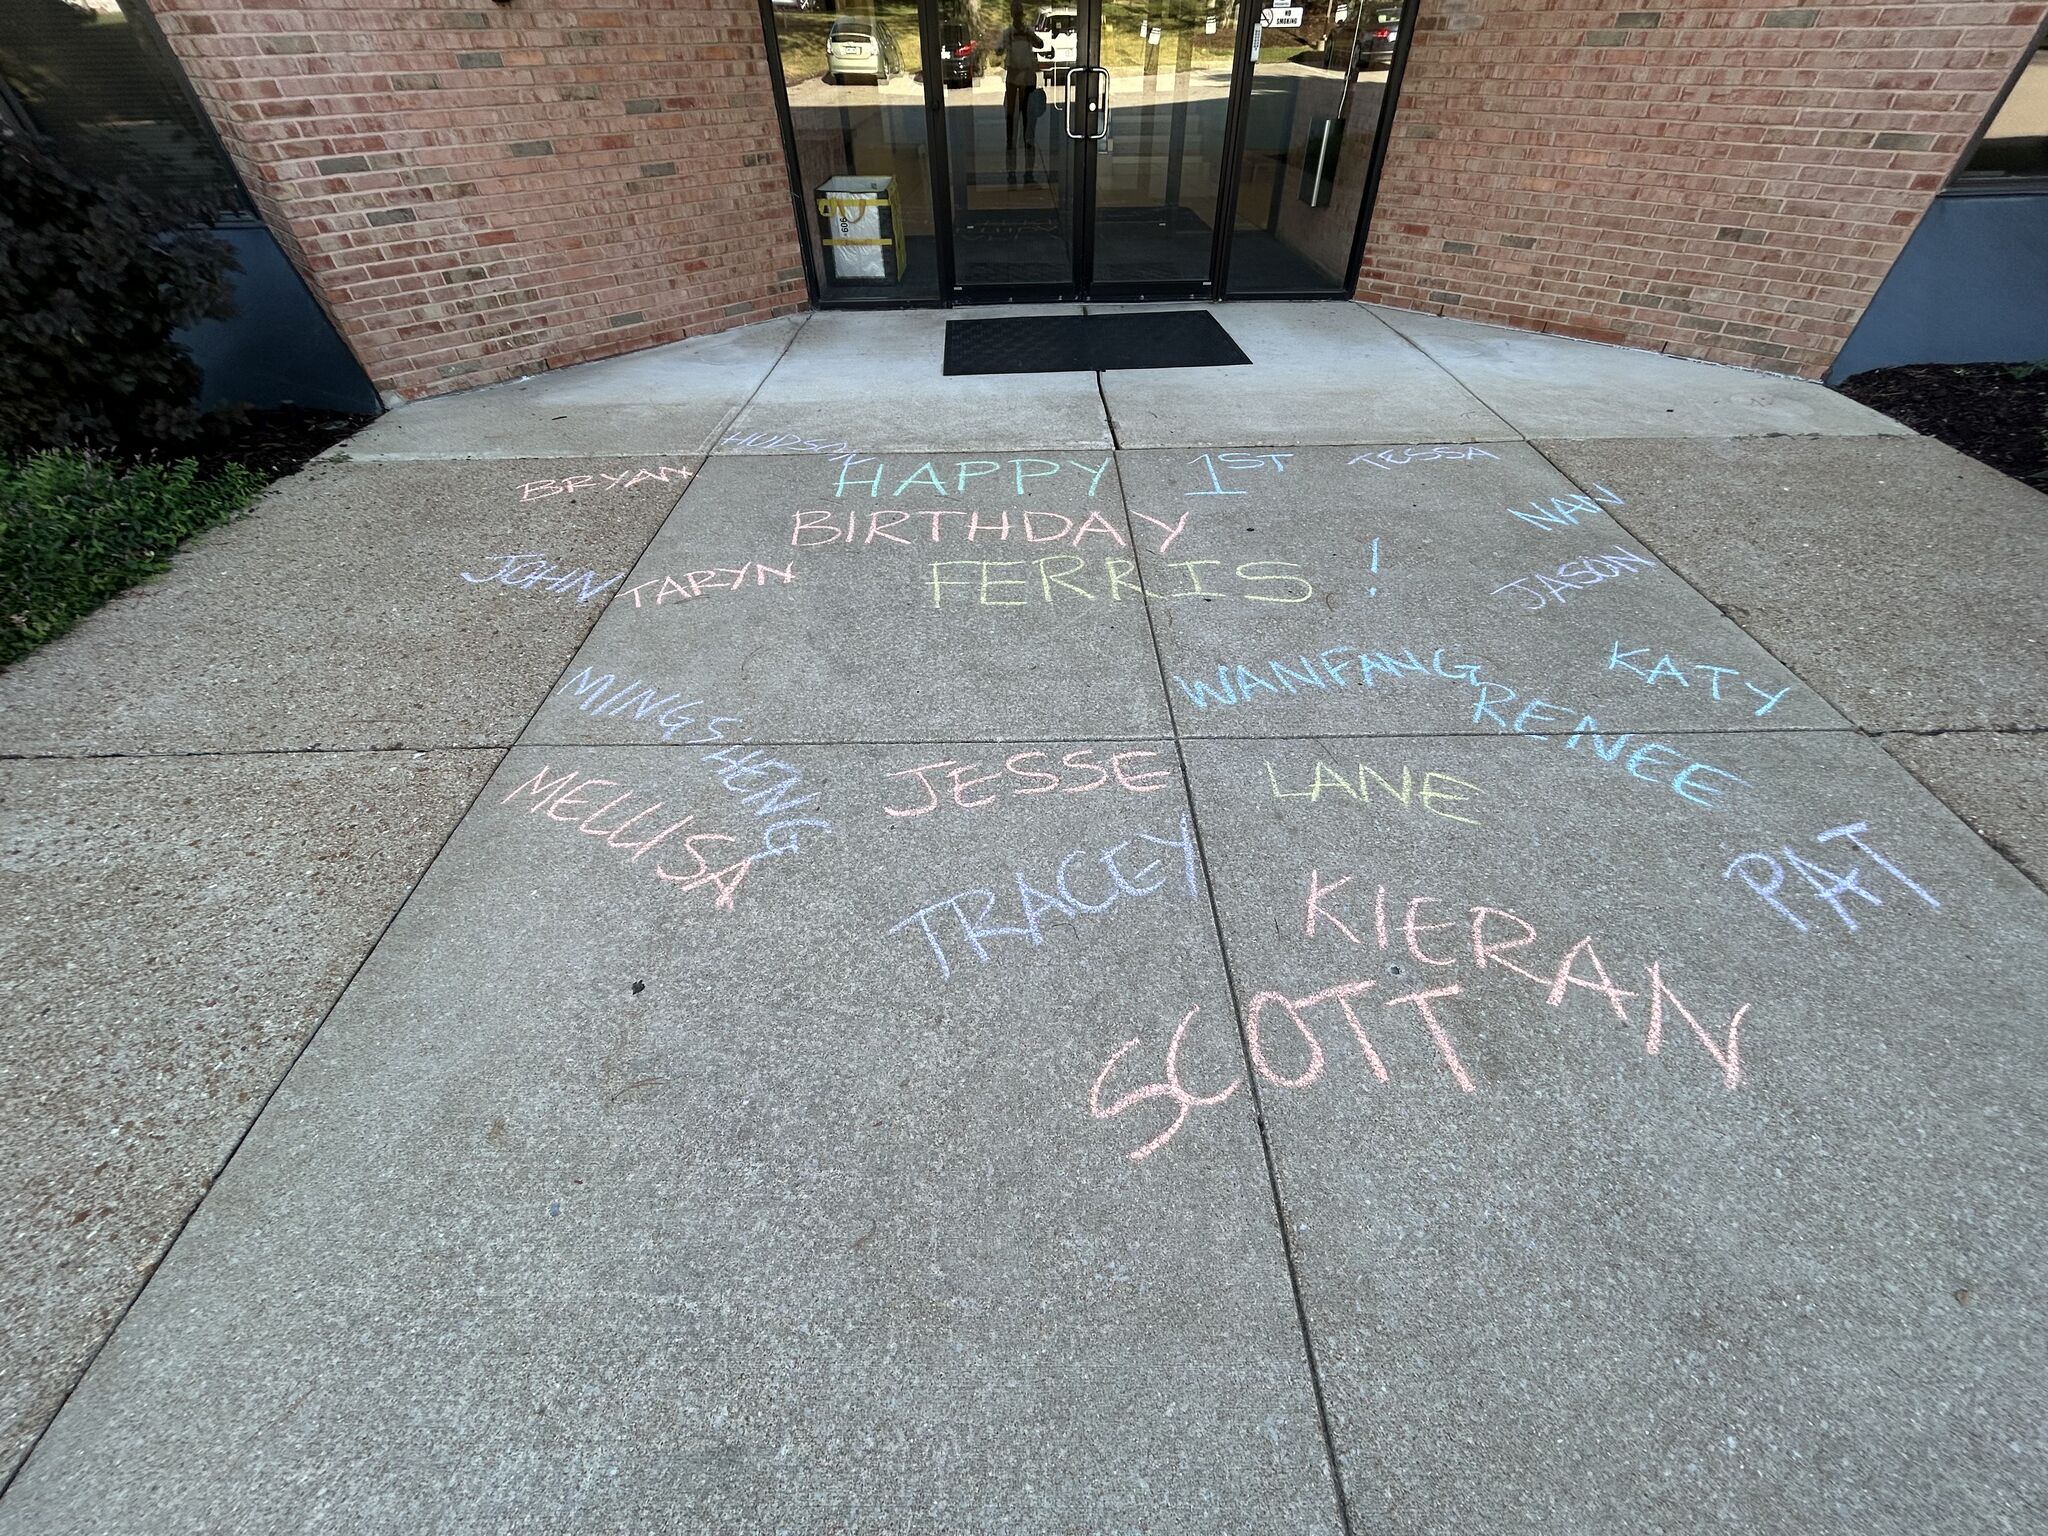 NO
SMOKING
HUDSON
BRYAN
HAPPY 1ST
TESSA
BIRTHDAY
NAN
FERRIS !
JOHN
TARYN
JASON
WANFANG
KATY
MINGSHENG
RENEE
MELLISA
JESSE
LANE
TRACEY
PAT
KIERAN
SCOTT